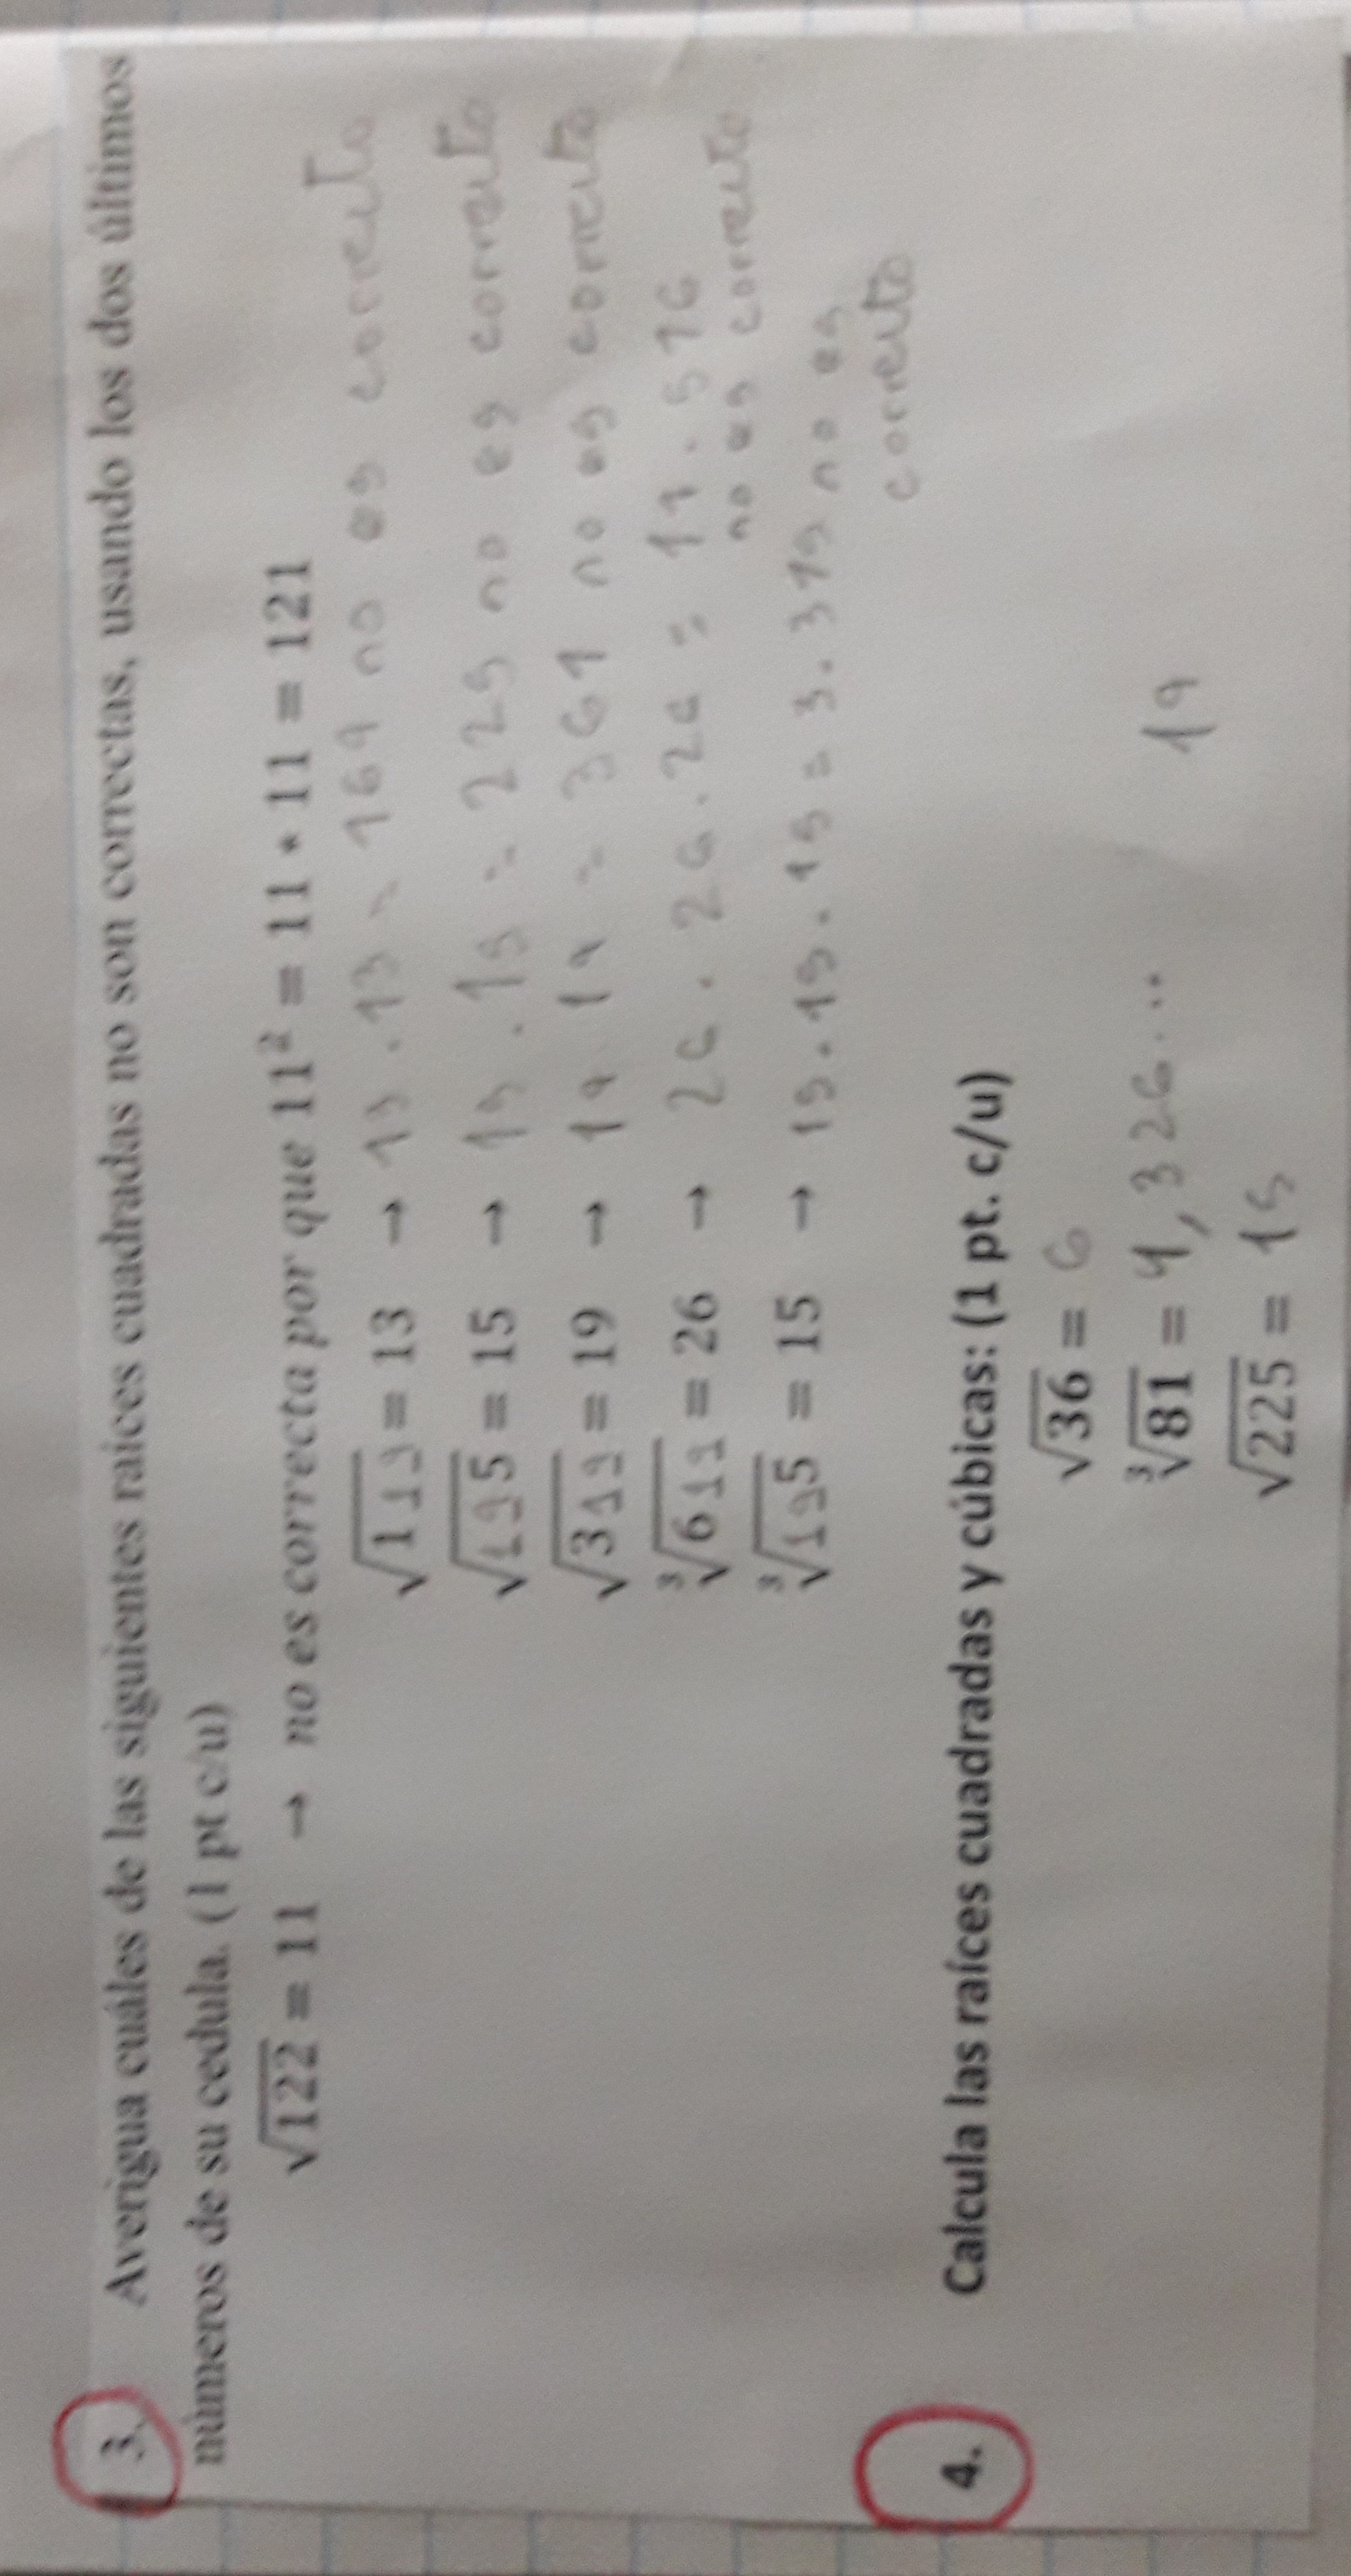 3. Averigua cuáles de las siguientes raíces cuadradas no son correctas, usando los dos últimos
números de su cedula. (1 pt c/u)
√122 = 11 → no es correcta por que 11² = 11 * 11 = 121
√119 = 13 → 13 . 13 = 169 no es correcto
√195 = 15 → 15 . 15 = 225 no es correcto
√319 = 19 → 19 . 19 = 361 no es correcto
∛619 = 26 → 26 . 26 . 26 = 17.576
no es correcto
∛195 = 15 → 15 . 15 . 15 = 3.375 no es
correcto
4. Calcula las raíces cuadradas y cúbicas: (1 pt. c/u)
√36 = 6
∛81 = 4,326...
19
√225 = 15